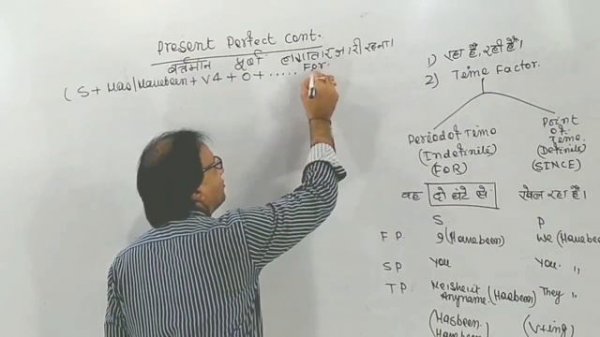 Present Perfect Cont.
वर्तमान पूर्ण लगातार जारी रहना।
For
(S + Has/Havebeen + V4 + O + .....
1) रहा है, रही है।
2) Teime Factor.
Period of Time Point
(Indefinite) of Teime.
(FOR) (Definite)
(SINCE)
वह दो घंटे से खेल रहा है।
S P
F P. I (Havebeen) We (Havebeen
SP You You. ,,
TP. He/she/it They ,,
Anyname. (Hasbeen)
(Hasbeen (V+ing)
Havebeen